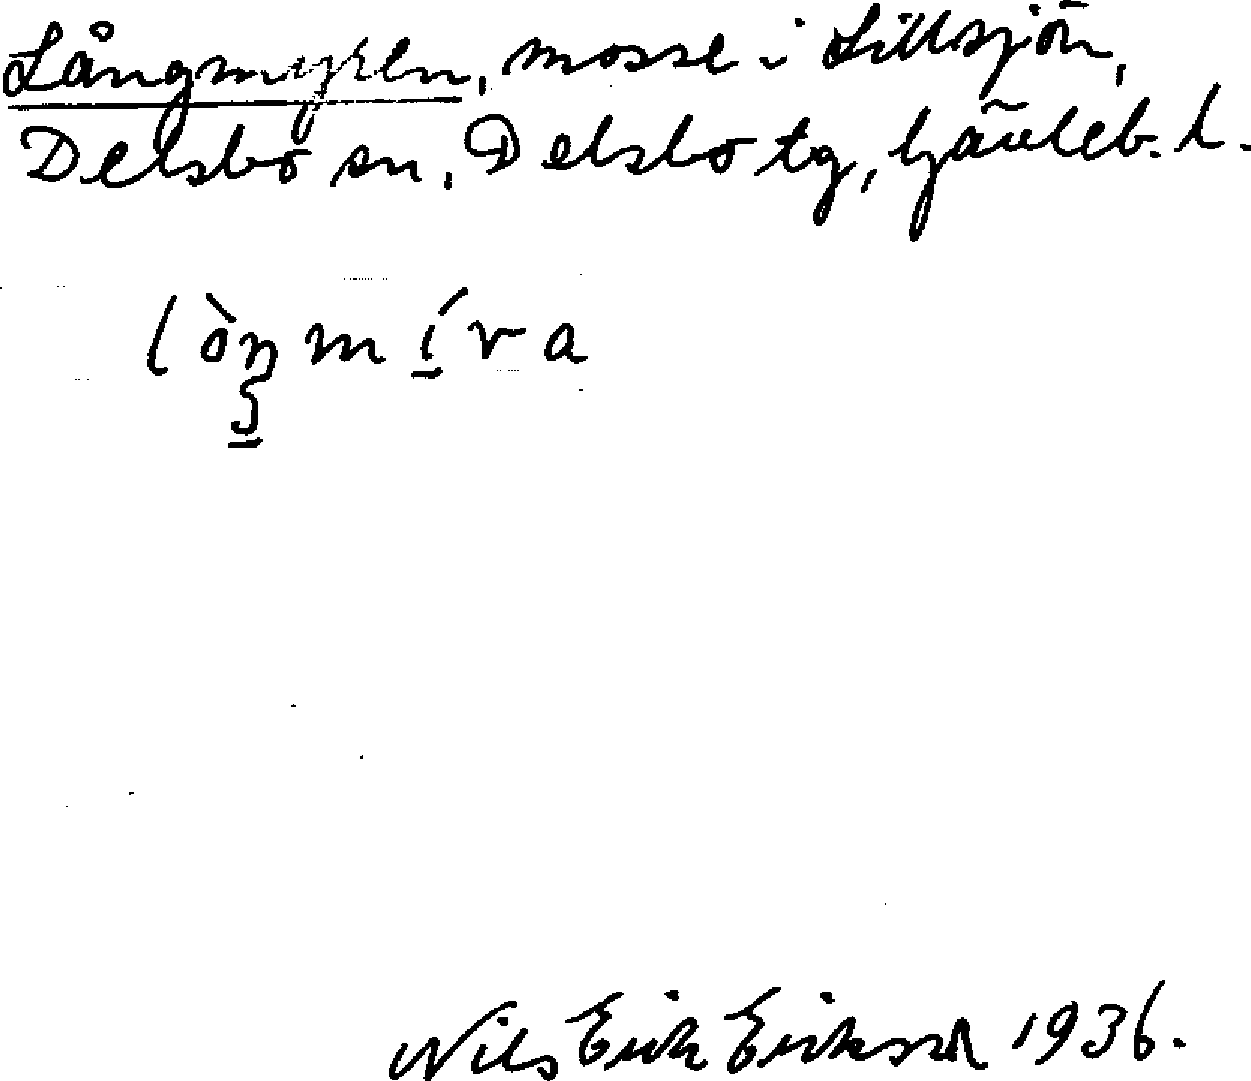 Långmyren, mosse i Lillsjön,
Delsbo sn, Delsbo tg, Gävleb. l.
lòŋmíra
Nils Erik Erikson 1936.